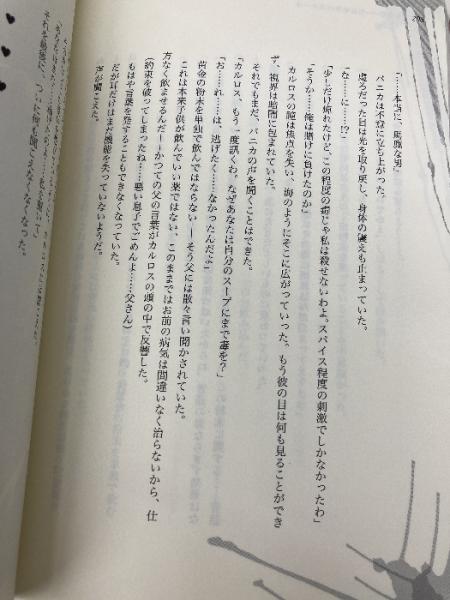 「……本当に、馬鹿な男」
バニカは不意に立ち上がった。
虚ろだった目は光を取り戻し、身体の震えも止まっていた。
「な……に……!?」
「少しだけ痺れたけど、この程度の毒じゃ私は殺せないわよ。スパイス程度の刺激でしかなかったわ」
「そうか……俺は賭けに負けたのか」
カルロスの瞳は焦点を失い、海のようにそこに広がっていった。もう彼の目は何も見ることができ
ず、視界は暗闇に包まれていた。
それでもまだ、バニカの声を聞くことはできた。
「カルロス、もう一度訊くわ。なぜあなたは自分のスープにまで毒を?」
「お……れ……は、逃げたく……なかったんだよ」
黄金の粉末を単独で飲んではならない――そう父には散々言い聞かされていた。
これは本来子供が飲んでいい薬ではない。このままではお前の病気は間違いなく治らないから、仕
方なく飲ませるんだ――かつての父の言葉がカルロスの頭の中で反響した。
(約束を破ってしまったね……悪い息子でごめんよ……父さん)
もはや言葉を発することもできなくなっていた。
だが耳だけはまだ機能を失っていないようだ。
声が聞こえた。
それを最後に、ついに何も聞こえなくなった。